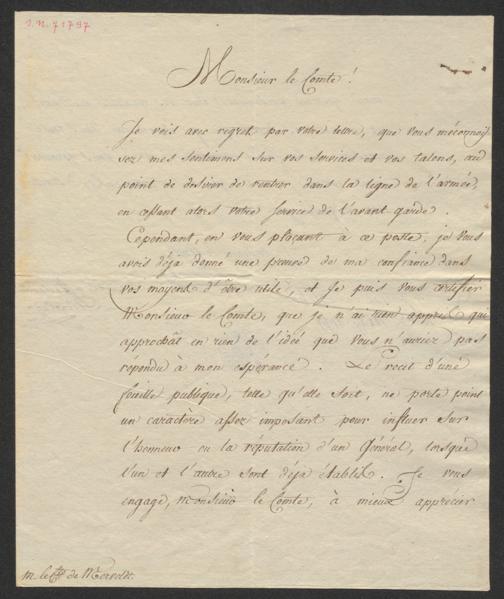 I.N. 71797
Monsieur le Comte!
Je vois avec regret par votre lettre, que vous méconnois
sez mes sentimens sur vos services et vos talens, au
point de desirer de rentrer dans la ligne de l'armée,
en cessant alors votre service de l'avant garde.
Cependant, en vous plaçant à ce poste, je vous
avois déja donné une preuve de ma confiance dans
vos moyens d'être utile, et je puis vous certifier
Monsieur le Comte, que je n'ai rien appris qui
approchât en rien de l'idée que vous n'auriez pas
répondu à mon espérance. Le recit d'une
feuille publique, telle qu'elle soit, ne porte point
un caractère assez imposant pour influer sur
l'honneur ou la réputation d'un Général, lorsque
l'un et l'autre sont déja établis. Je vous
engage, Monsieur le Comte, à mieux apprécier
m. le de